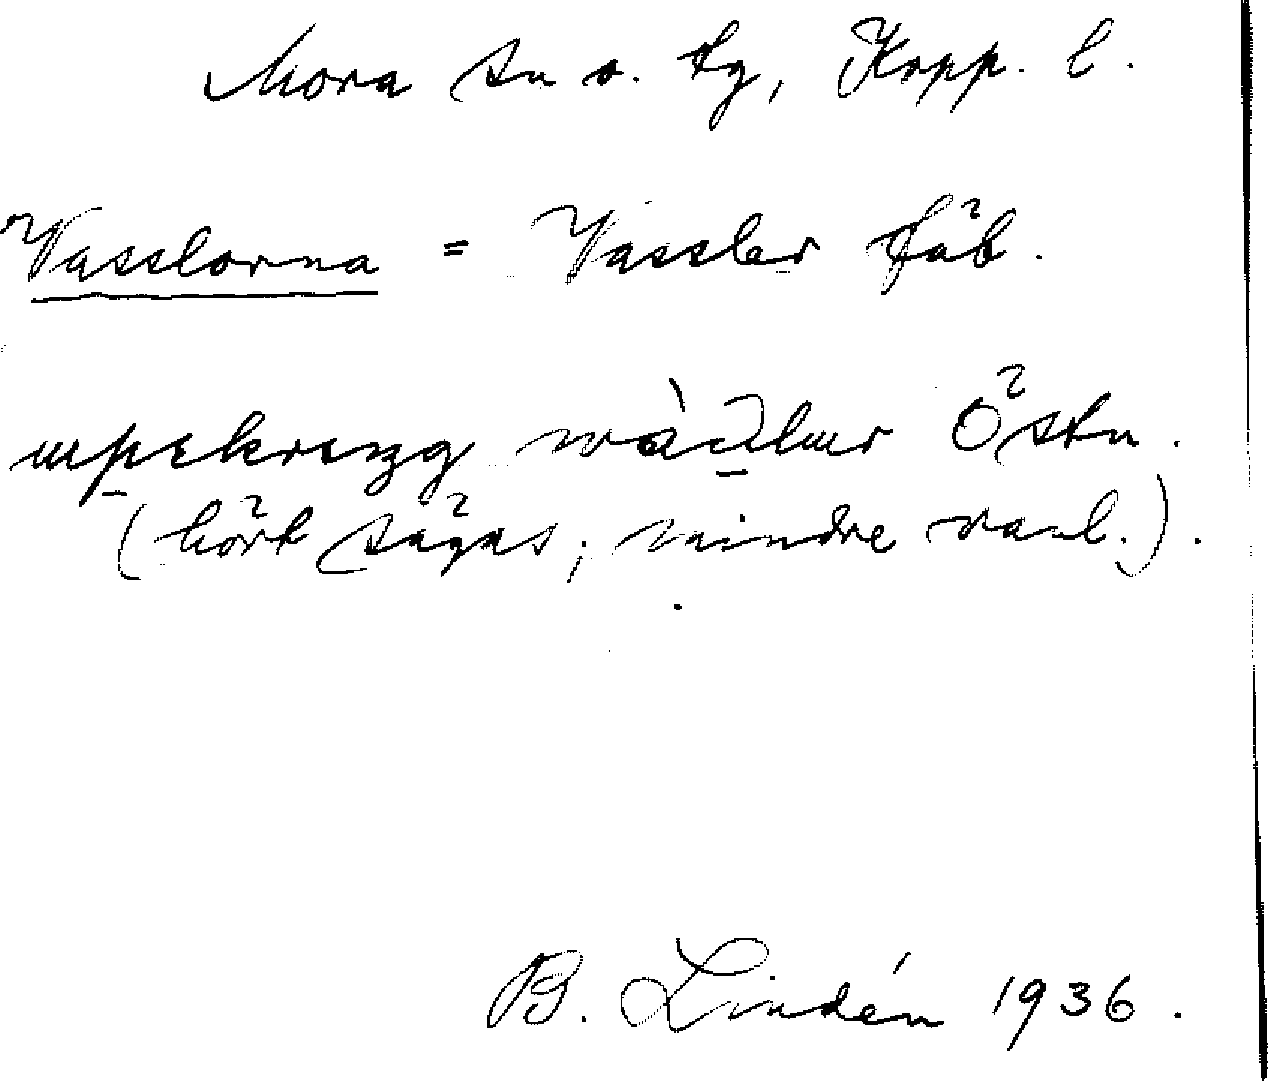 Mora sn o. tg, Kopp. l.
Vasslorna = Vassler fäb.
wàslur Östn.
(hört sägas; mindre vanl.).
B. Lindén 1936.